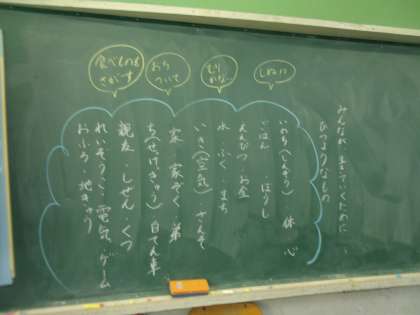 みんなが生きていくために
ひつようなもの
いのち(しんぞう) 体 心
ごはん ぼうし
えんぴつ・お金
水・ふく まち
いき(空気) さんそ
家 家ぞく・弟
ち(せっけっきゅう) 自てん車
親友・しぜん・くつ
れいぞうこ・電気・ゲーム
おふろ・地きゅう
食べもの
さがす
おち
ついて